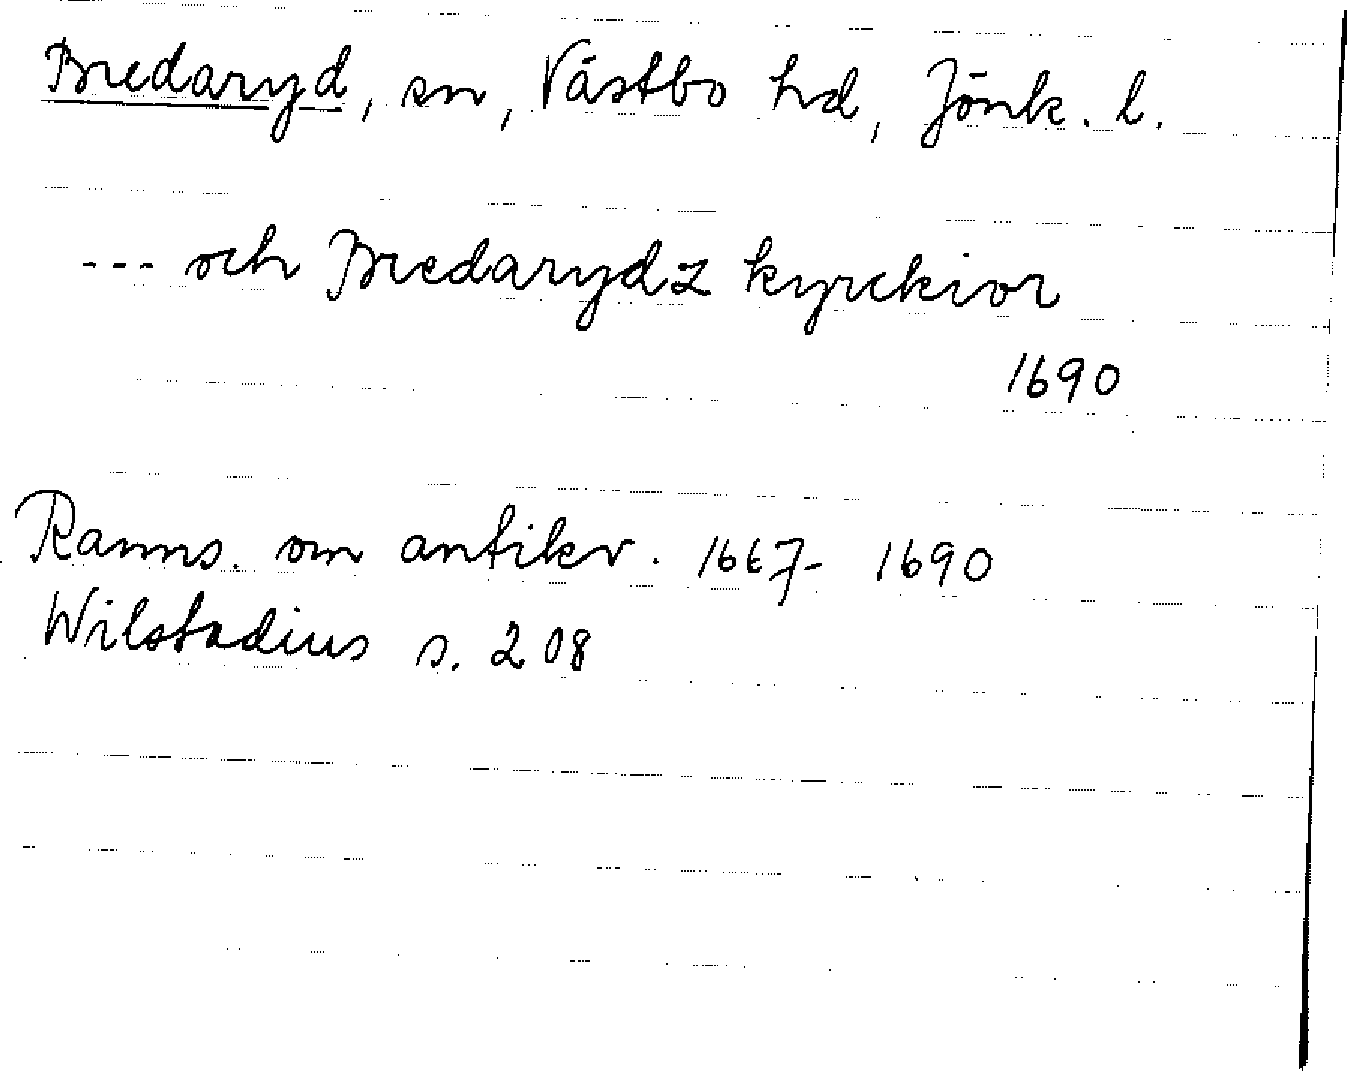 Bredaryd, sn, Västbo hd, Jönk. l.
--- och Bredarydz kyrckior
1690
Ranns. om antikv. 1667- 1690
Wilstadius s. 208